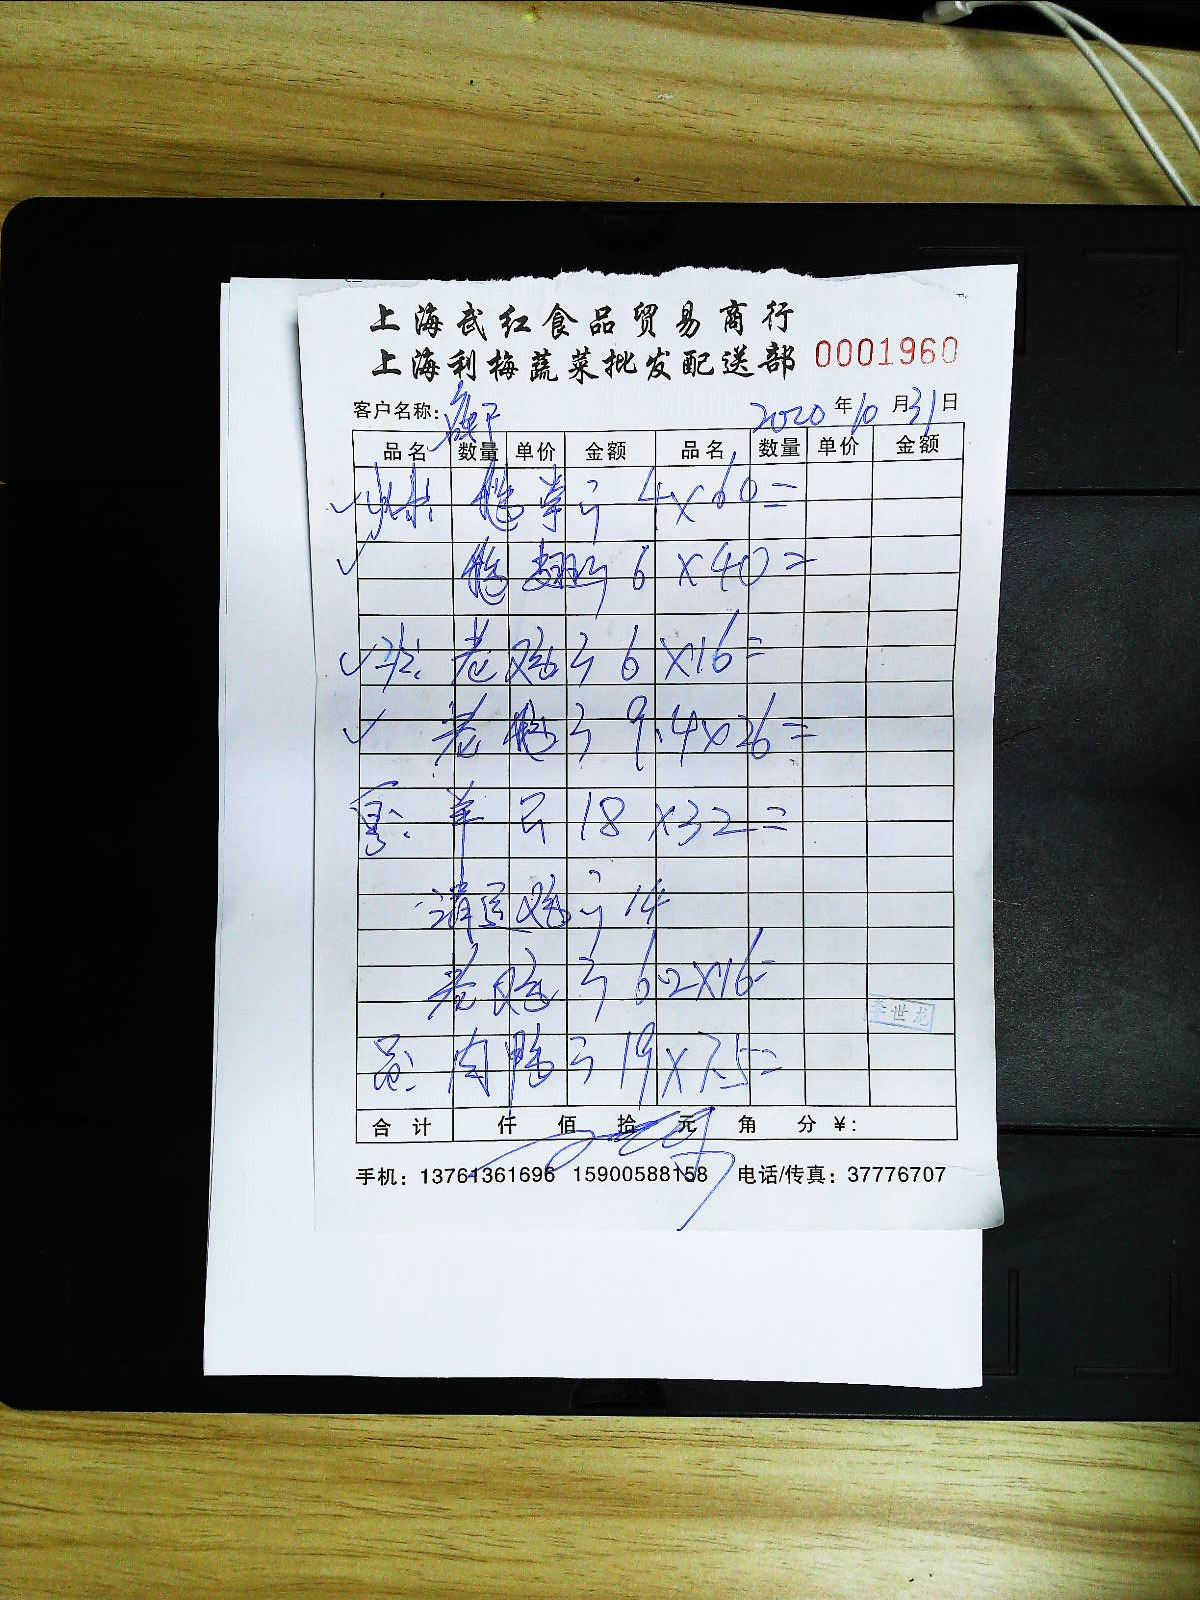 上海武红食品贸易商行
上海利梅蔬菜批发配送部 0001960
客户名称: 2020年10月31日
品名 数量 单价 金额 品名 数量 单价 金额
鹅掌 4×60=
鹅翅 6×40=
老鸡 6×16=
老鹅 9.4×26=
羊 18×32=
清远鸡 14
老鸡 6.2×16=
肉鸭 19×7.5=
李世龙
合计 仟 佰 拾 元 角 分 ¥:
手机: 13761361696 15900588158 电话/传真: 37776707